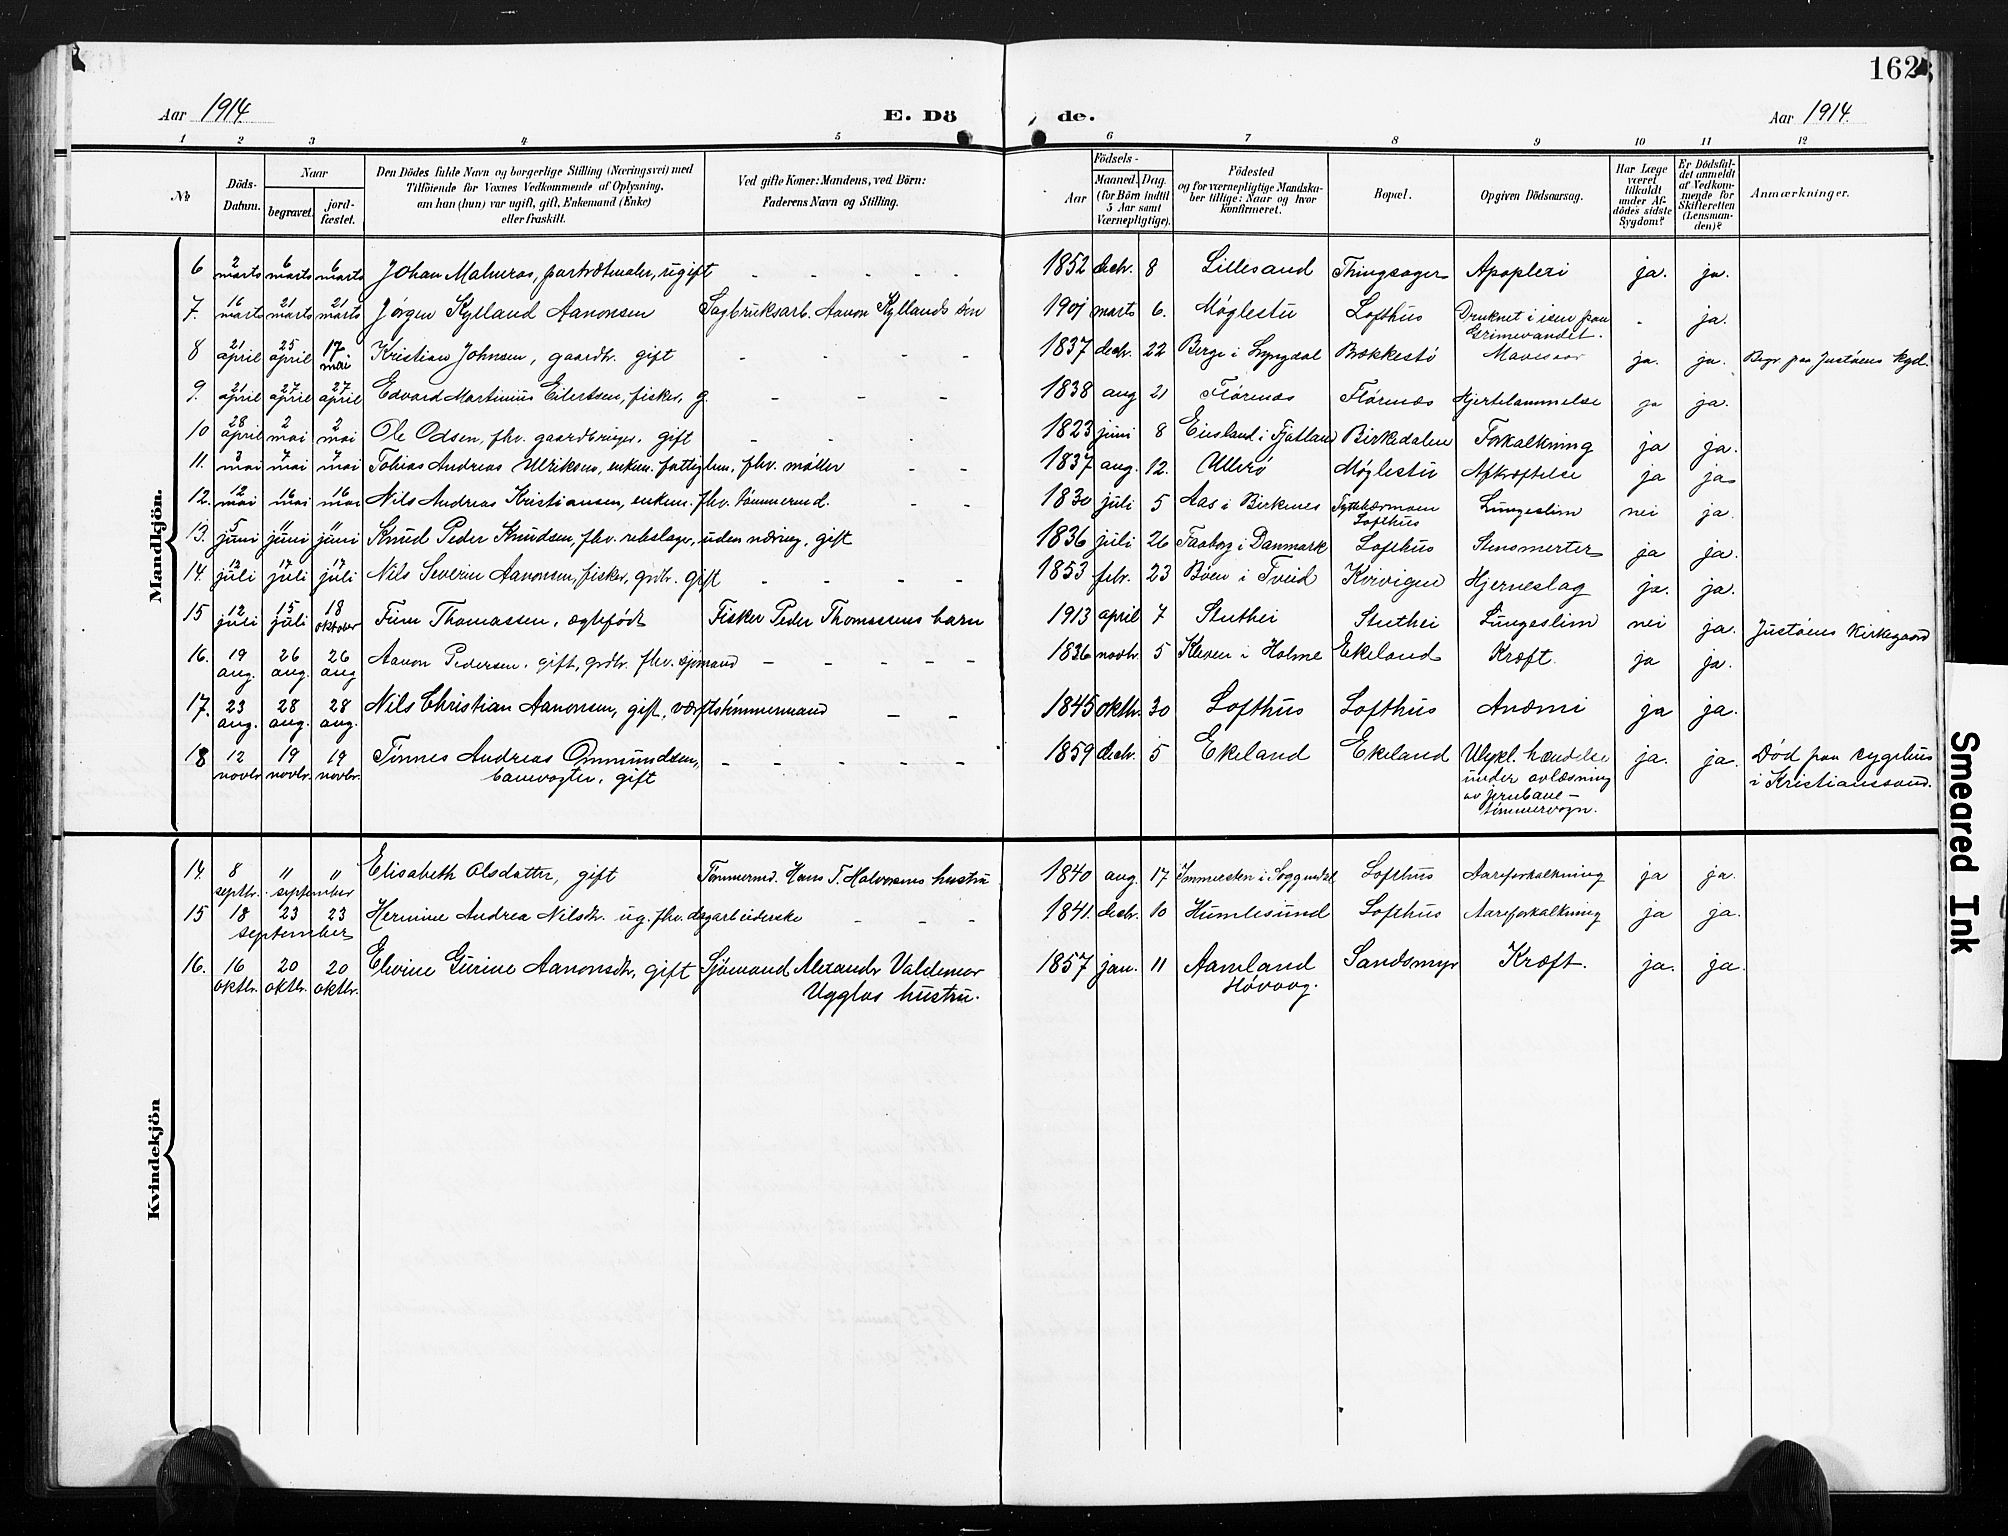 162
Aar 1914. E. Dö de. Aar 1914.
1 2 3 4 5 6 7 8 9 10 11 12
№ Döds-Datum. Naar begravet. jord-fæstet. Den Dödes fulde Navn og borgerlige Stilling (Næringsvei) med Tilföiende for Voxnes Vedkommende af Oplysning, om han (hun) var ugift, gift, Enkemand (Enke) eller fraskilt. Ved gifte Koner: Mandens, ved Börn: Faderens Navn og Stilling. Födsels- Aar Maaned. Dag. (for Börn indtil 5 Aar samt Værnepligtige). Födested og for værnepligtige Mandskaber tillige: Naar og hvor konfirmeret. Bopæl. Opgiven Dödsaarsag. Har Læge været tilkaldt under Afdödes sidste Sygdom? Er Dödsfaldet anmeldt af Vedkommende for Skifteretten (Lensmanden)? Anmærkninger.
Mandkjön.
6 2 marts 6 marts 6 marts Johan Malmros, portrætmaler, ugift - - - - - 1852 decbr. 8 Lillesand Thingsager Apoplexi ja. ja.
7. 16 marts 21 marts 21 marts Jørgen Kylland Aanonsen Sagbruksarb. Aanon Kyllands søn 1901 marts 6. Møglestu Lofthus Druknet i isen paa Grimevandet. - ja.
8 21 april 25 april 17 mai Kristian Johnsen, gaardbr. gift - - - - 1837 decbr. 22 Berge i Lyngdal Bækkestø Mavesaar ja. ja. Begr. paa Justøens kgd.
9. 21 april 27 april 27 april Edvard Martinius Eilertsen, fisker, g. - - - 1838 aug 21 Flørenæs Flørenæs Hjertelammelse ja ja.
10 28 april 2 mai 2 mai Ole Odsen, fhv. gaardbruger. gift - - - 1823 juni 8 Eiesland i Fjotland Birkedalen Forkalkning ja ja.
11. 3 mai 7 mai 7 mai Tobias Andreas Ulriksen, enkem. fattiglem, fhv. møller - - 1837 aug. 12. Ullerø Møglestu Afkræftelse ja ja
12. 12 mai 16 mai 16 mai Nils Andreas Kristiansen, enkem. fhv. tømmermd. - - 1830 juli 5 Aas i Birkenes Lofthus Lungeslim nei ja.
13. 5 juni 11 juni 11 juni Knud Peder Knudsen, fhv. rebslager, uden næring, gift 1836 juli 26 Faaborg i Danmark Lofthus Stensmerter ja ja.
14. 12 juli 17 juli 17 juli Nils Severin Aanonsen, fisker, grdbr. gift - - - - 1853 febr. 23 Boen i Tveid Kvovigen Hjerneslag ja. ja.
15 12 juli 15 juli 18 oktober Finn Thomassen, ægtefødt Fisker Peder Thomassens barn 1913 april 7 Stuthei Stuthei Lungeslim nei ja. Justøens Kirkegaard
16. 19 aug. 26 aug. 26 aug Aanon Pedersen. gift, grdbr. fhv. sjømand - - - - - 1836 novbr. 5 Kleven i Holme Ekeland Kræft. ja ja.
17. 23 aug. 28 aug. 28 aug. Nils Christian Aanonsen, gift, værftstømmermand - - 1845 oktbr. 30 Lofthus Lofthus Anæmi ja ja.
18 12 novbr 19 novbr. 19 novbr. Tønnes Andreas Ommundsen, banevogter, gift - - - - - 1859 decbr. 5 Ekeland Ekeland Ulykl. hændelse under avlæsning av jernbane-tømmervogn. ja. ja. Død paa sygehus i Kristianssand.
Kvindekjön
14. 8 septbr. 11 11 september Elisabeth Olsdatter, gift Tømmermd. Hans T. Halvorsens hustru 1840 aug. 17 Immersten i Soggendal Lofthus Aareforkalkning ja ja.
15 18 23 23 september Hermine Andrea Nilsdtr. ug. fhv. dagarbeiderske - - - 1841. decbr. 10 Humlesund Lofthus Aareforkalkning ja ja.
16. 16 oktbr. 20 oktbr. 20 oktbr. Elevine Gurine Aanonsdtr, gift Sjømand Alexander Valdemar Ugglas hustru. 1857 jan. 11 Aamland Høvaag. Sandsmyr Kræft. ja. ja.
Smeared Ink